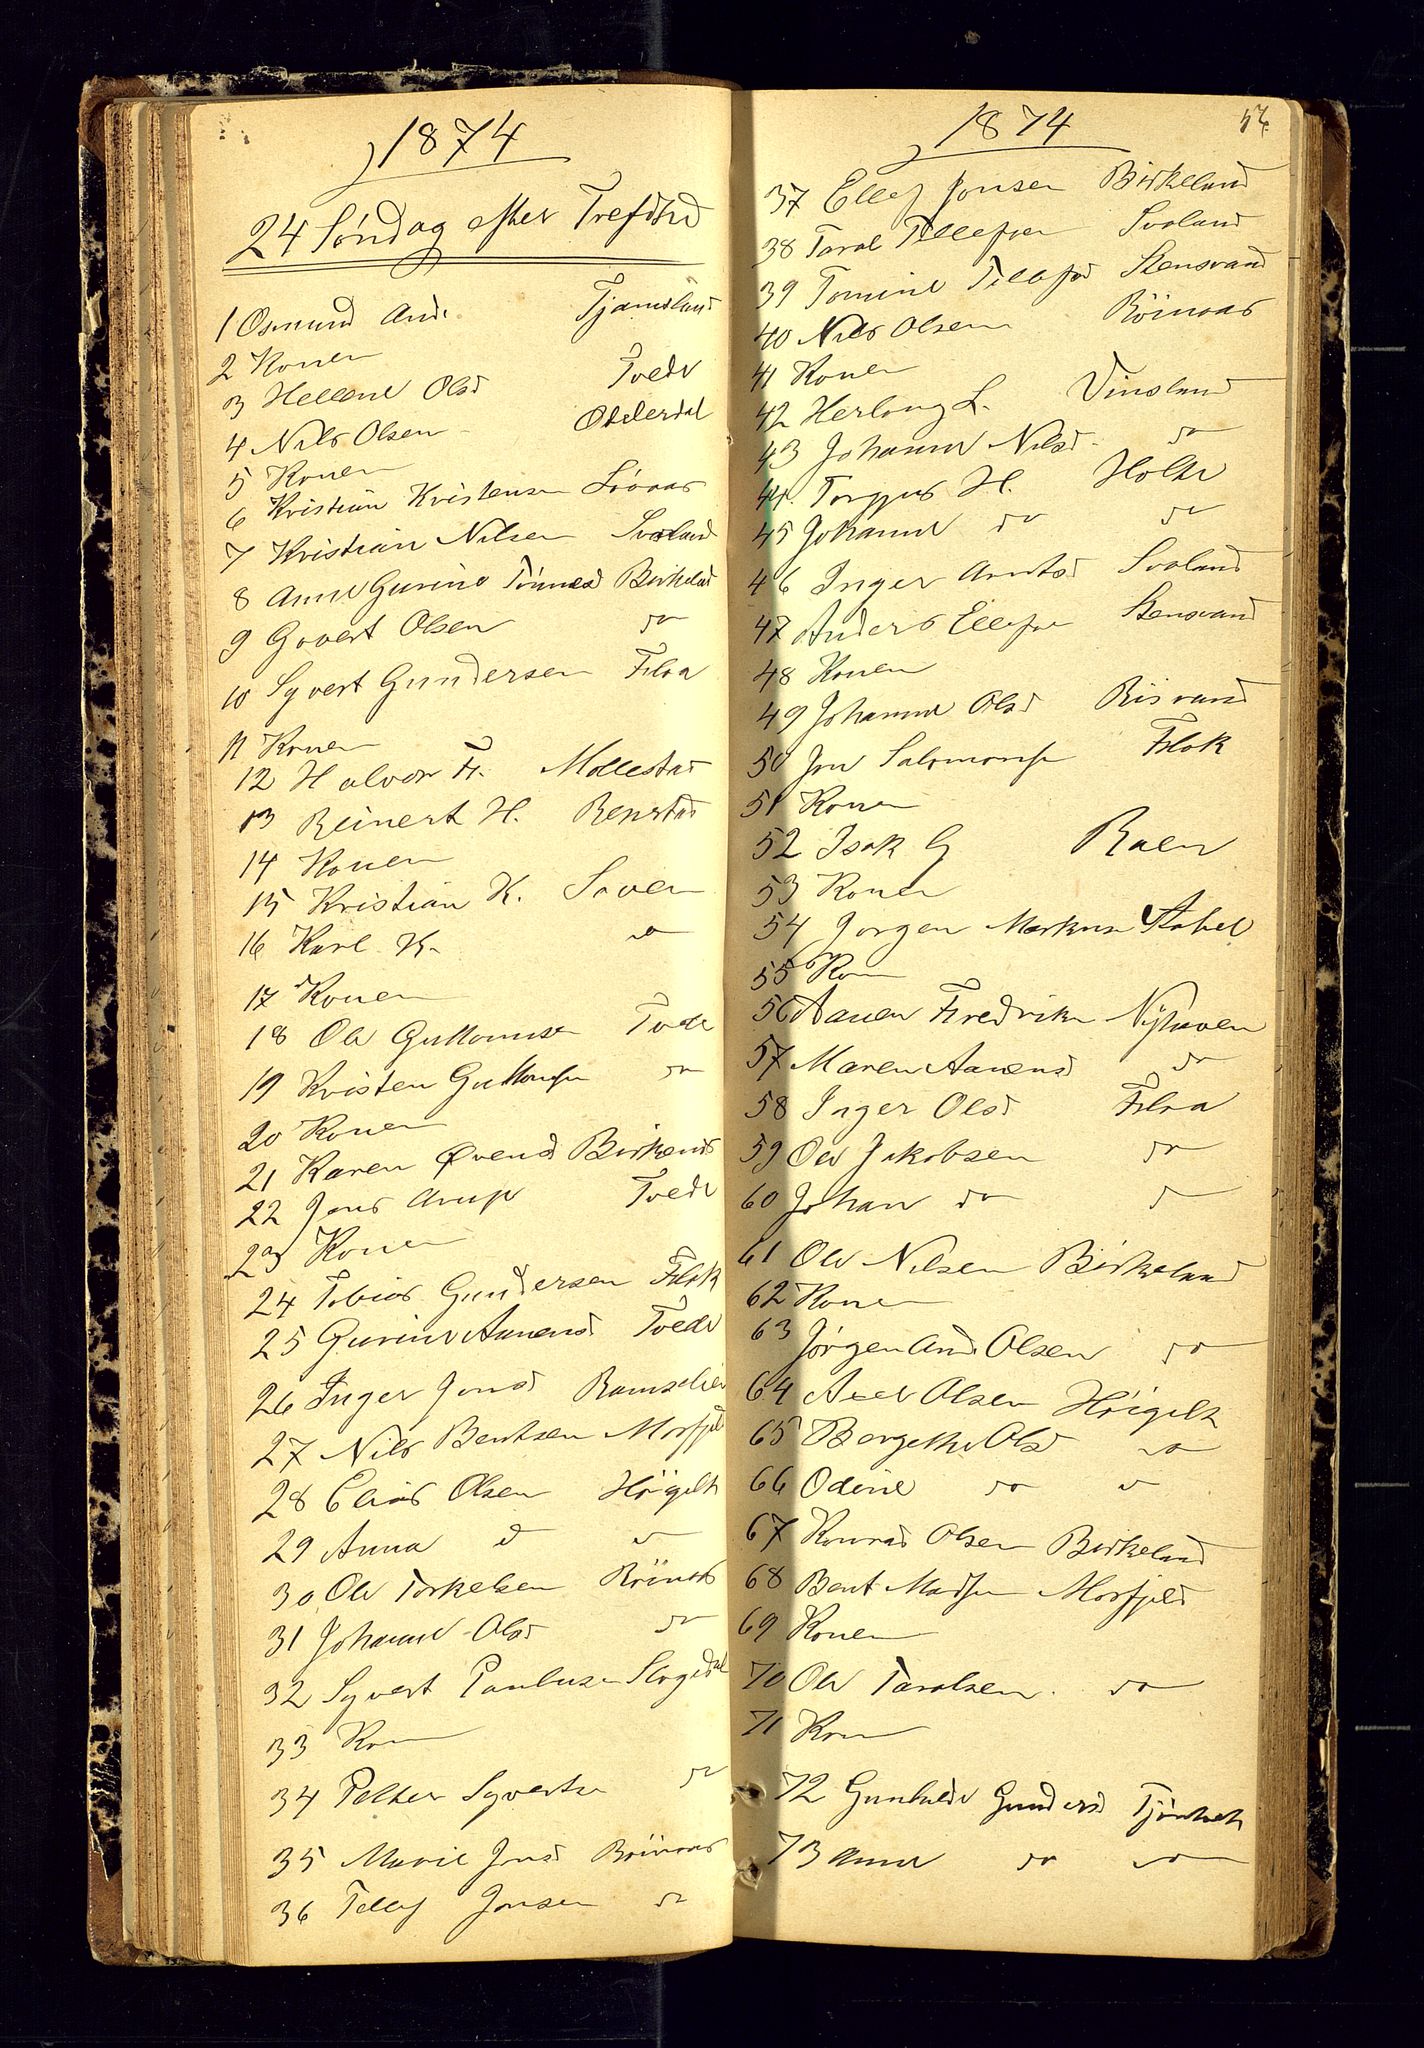 1874
24 Søndag efter Trefdhd
1 Osmund And. Tjamsland
2 Konen
3 Hellene Olsd Tvede
4 Nils Olsen Odderdal
5 Konen
6 Kristian Kristensen Løvaas
7 Kristian Nilsen Svaland
8 Anne Gurine Tønnesd Birkelad
9 Govert Olsen do
10 Syvert Gundersen Flaa
11 Konen
12 Halvor Fr. Mollestad
13 Reinert H. Renstad
14 Konen
15 Kristian K. Saven
16 Karl K. do
17 Konen
18 Ole Guttormsen Tvede
19 Kristen Guttormsen do
20 Konen
21 Karen Øvensd Birkenes
22 Jens Arup Tvede
23 Konen
24 Tobias Gundersen Flak
25 Gurine Aanensd Tvede
26 Inger Jensd
27 Nils Bentsen Morfjeld
28 Elias Olsen Høigilt
29 Anna d do
30 Ole Torkelsen Röinaas
31 Johanne Olsd do
32 Syvert Paulusen
33 Kon
34 Petter Syvertsen do
35 Marie Jensd Röinaas
36 Tellef Jonsen do
1874
57
37 Ellef Jonsen Birkeland
38 Taral Tellefsen Svaland
39 Tomine Tellefsd Stensvand
40 Nils Olsen Röinaas
41 Konen
42 Herlaug L. Vinsland
43 Johanne Nilsd do
44. Torjus H. Holte
45 Johanne do do
46 Inger Arntsd Svaland
47 Anders Ellefsen Stensvand
48 Konen
49 Johanne Olsd Risvand
50 Jon Salomonsen Flak
51 Konen
52 Isak G Raen
53 Konen
54 Jorgen Markus Stabel
55 Kon
56 Aanen Fredrik Nyhaven
57 Maren Aanensd do
58 Inger Olsd Flaa
59 Ole Jakobsen do
60 Johan do do
61 Ole Nilsen Birkeland
62 Konen
63 Jörgen And. Olsen do
64 Axel Olsen Høigilt
65 Bergethe Olsd do
66 Odine do do
67 Konrad Olsen Birkeland
68 Bent Madsen Morfjeld
69 Konen
70 Ole Taralsen do
71 Kon
72 Gunhilde Gundersd
73 Anne do do